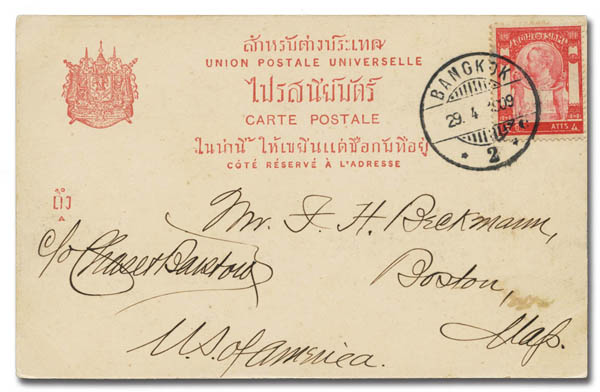 สำหรับต่างประเทศ
UNION POSTALE UNIVERSELLE
ไปรสนียบัตร์
CARTE POSTALE
ในน่านี้ ให้เขียนแต่ชื่อกับที่อยู่
CÔTÉ RÉSERVÉ À L'ADRESSE
BANGKOK
29. 4. 09
2
ATTS. 4
ถึง
Mr. F. H. Beckmann,
c/o Chase & Barstow
Boston,
Mass.
U.S. of America.